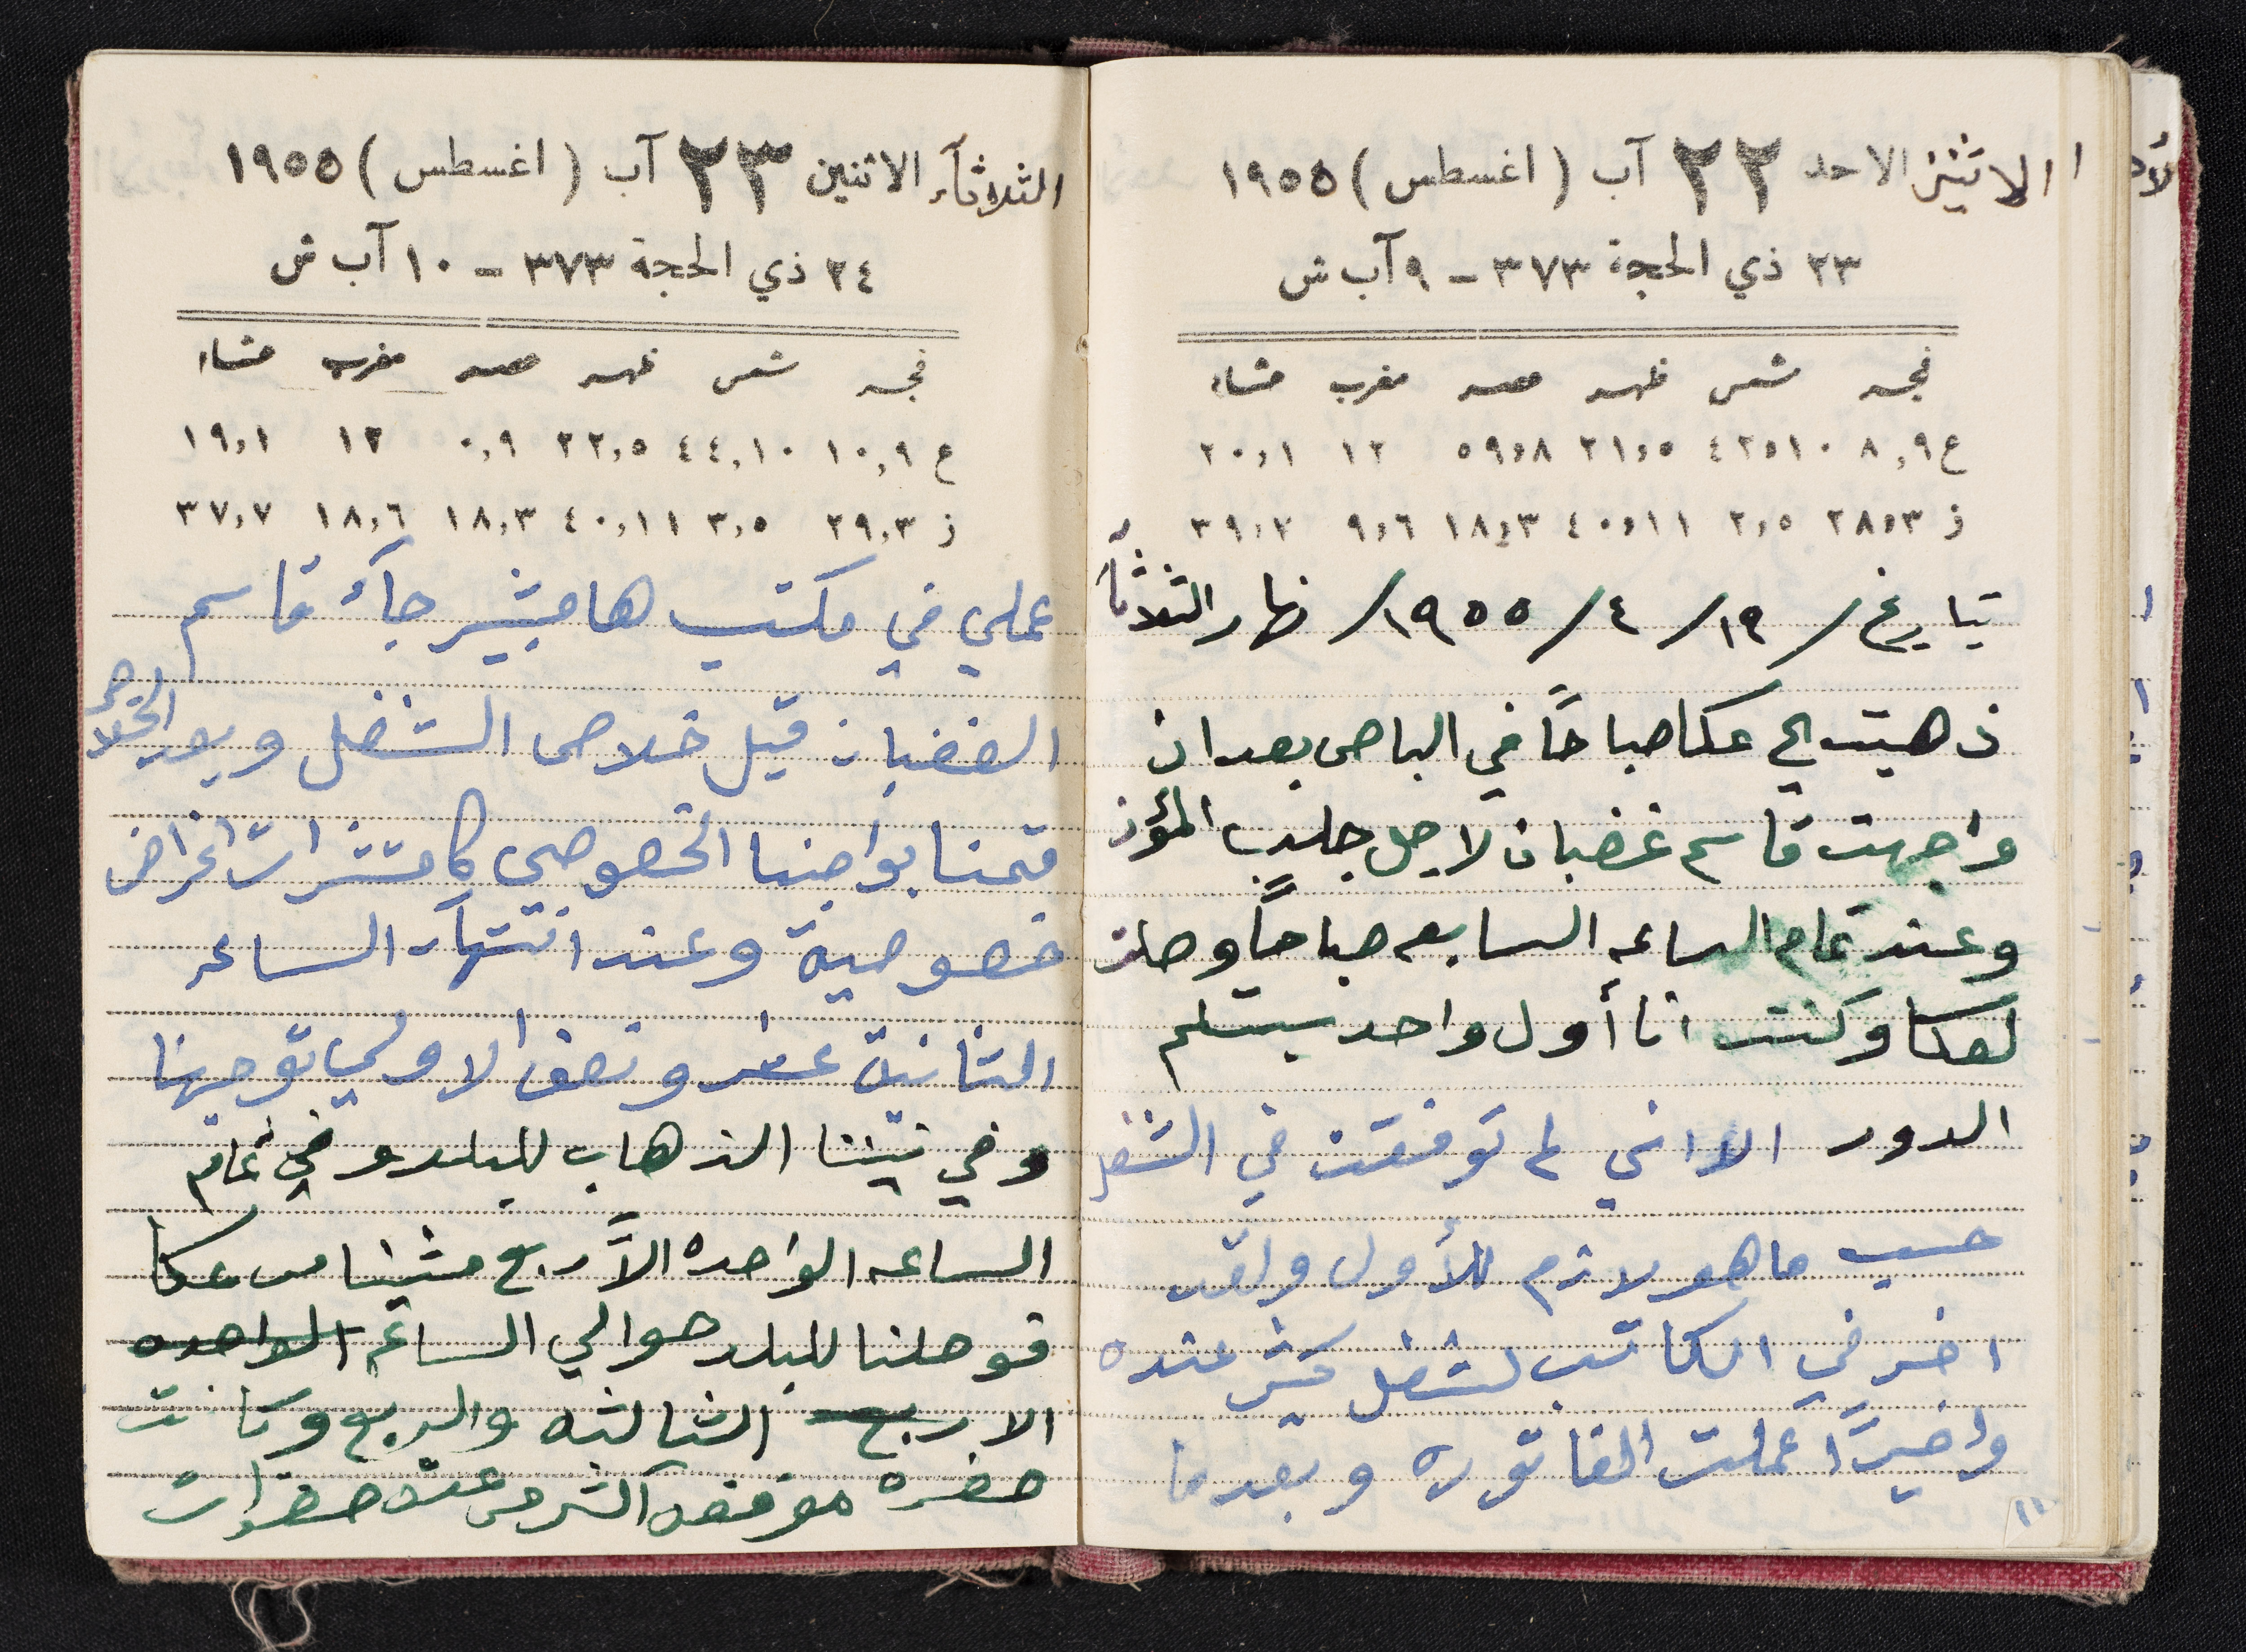 الاثنين الاحد ٢٢ آب (اغسطس) ١٩٥٥
٢٣ ذي الحجة ٣٧٣ - ٩ آب ش
فجر شمس ظهر عصر مغرب عشاء
ع ٨,٩ ٤٢,١٠ ٢١,٥ ٥٩,٨ ١٢ ٢٠,١
ز ٢٨,٣ ٢,٥ ٤٠,١١ ١٨,٣ ٩,٦ ٣٩,٧
بتاريخ / ١٩/ ٤/ ١٩٥٥/ نهار الثلاثآء
ذهبت الى عكا صباحاً في الباص بعد ان
واجهت قاسم غضبان لاجل جلب المؤن
وعند تمام الساعه السابعه صباحاً وصلت
لعكا وكنت انا أول واحد يستلم
الدور الا اني لم توفقت في الشغل
حسب ما هو لازم للأول ولقد
اخرني الكاتب لشغل كثير عنده
واخيراً عملت الفاتوره وبعدما
١١
الثلاثآء الاثنين ٢٣ آب (اغسطس) ١٩٥٥
٢٤ ذي الحجة ٣٧٣ - ١٠ آب ش
فجر شمس ظهر عصر مغرب عشاء
ع ١٠,٩ ٤٤,١٠ ٢٢,٥ ٠,٩ ١٢ ١٩,١
ز ٢٩,٣ ٣,٥ ٤٠,١١ ١٨,٣ ١٨,٦ ٣٧,٧
عملي في مكتب هامشبير جآء قاسم
الغضبان قبل خلاص الشغل وبعد الخلاص
قمنا بواجبنا الخصوصي كامشترات اغراض
خصوصية وعند انتهآء الساعه
الثانية عشر ونصف الاولى توجهنا
وفي نيتنا الذهاب للبلد وفي تمام
الساعه الواحده الاَّ ربع مشينا من عكا
فوصلنا للبلد حوالي الساعه الواحده
الا ربع الثالثه والربع وكانت
صفره موفقه اكثر من عدة صفرات